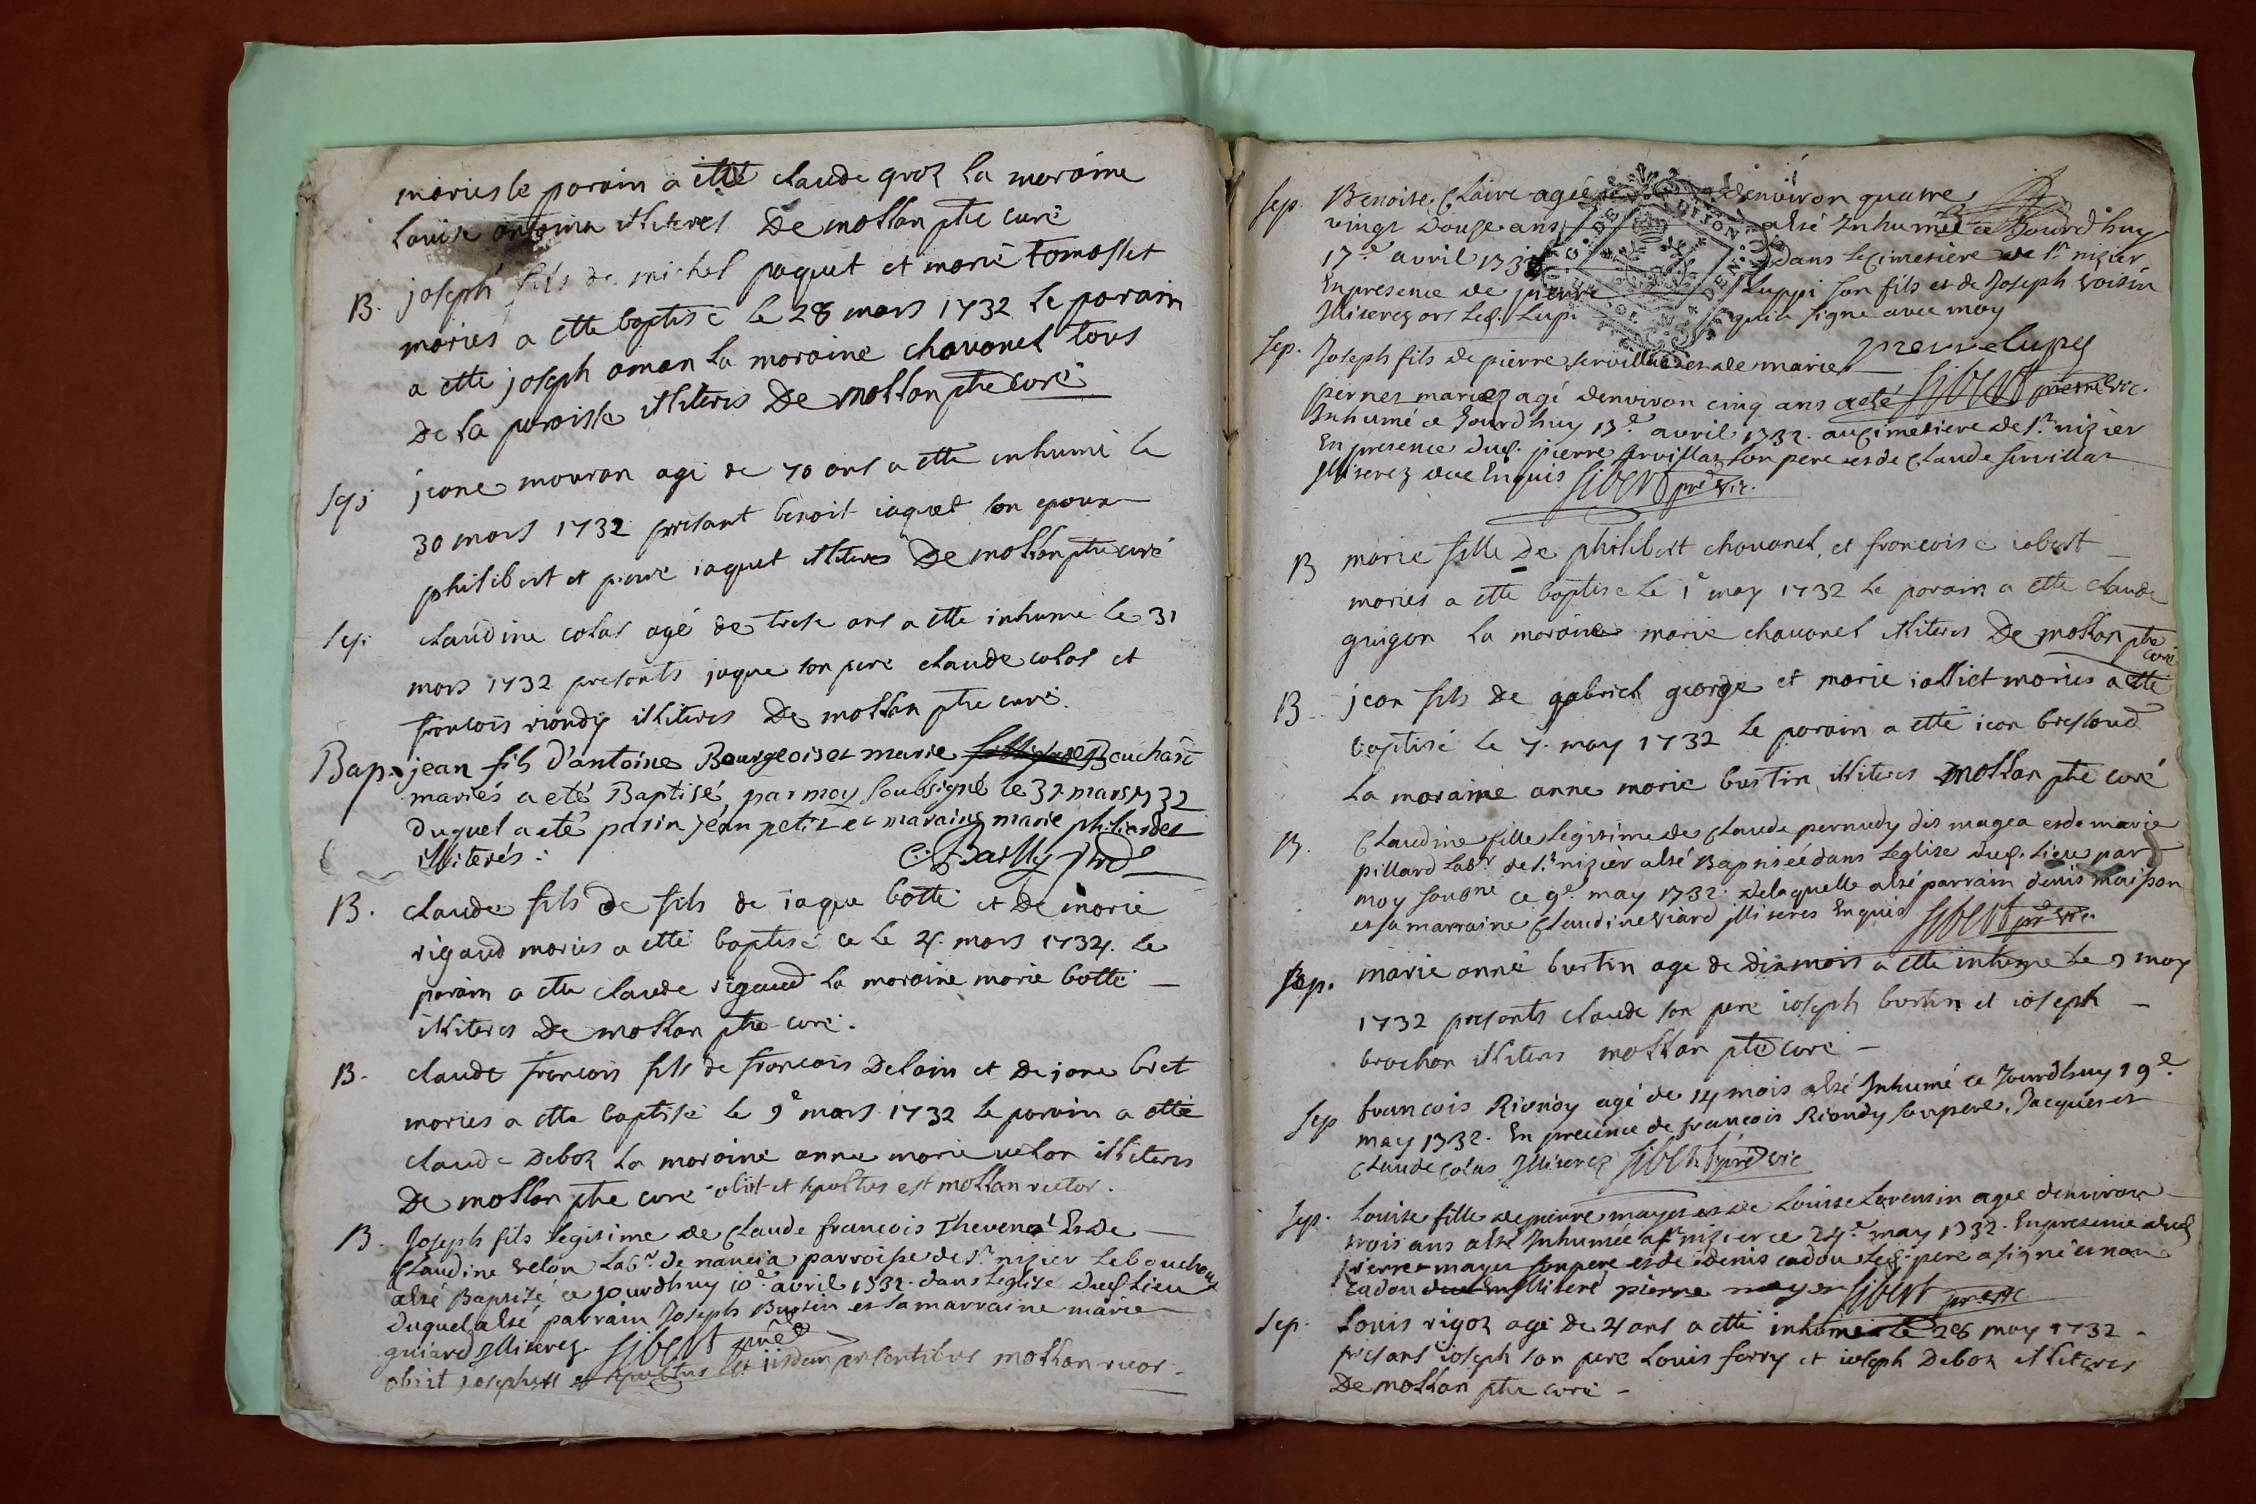 mariés le parain a etté claude groz la maraine
Louise antoina illiteres De mollan ptre curé
B. joseph fils de michel paquet et marie tomasset
mariés a ette baptisé le 28 mars 1732 le parain
a ette joseph aman la maraine chavanel tous
De la paroisse illiteres De mollan ptre curé
sep. jeane mouran agé de 70 ans a ette inhumé le
30 mars 1732 presant benoit iaquet son epoux
philibert et pierre iaquet illiteres De mollan ptre curé
sep. claudine colas agé de trese ans a ette inhumé le 31
mars 1732 presants jaque son pere claude colas et
francois riondy illiteres De mollan ptre curé.
Bap. jean fils d'antoine Bourgeois et marie Bouchard
mariés a eté Baptisé par moy soubsigné le 31 mars 1732
duquel a eté parin jean petit et maraine marie philiardet
illiterés. C: Bailly
B. claude fils de fils de iaque botti et De marie
rigaud mariés a etté baptisé ce le 4. mars 1732. le
parain a ette claude rigaud la maraine marie botti
illiteres De mollan ptre curé.
B. claude francois fils de francois Delain et De jane bret
mariés a ette baptisé le 9e mars 1732 le parain a etté
claude Deboz la maraine anne marie uelon illiteres
De mollan ptre curé obiit et sepultus est mollan rector.
B. Joseph fils legitime de Claude francois Thevenot Et de
Claudine velon labr. de nancia parroisse de st nizier le bouchoux
a esté Baptisé ce jourdhuy 10e avril 1732. dans leglise dud. Lieu
duquel a esté parrain Joseph Burtin et sa marraine marie
guiard Illiterez. Sibert
obiit josephus et sepultus est iisdem presentibus mollan rector.
sep. Benoite Claire agée denviron quatre
vingt Douze ans a esté Inhumée ce Jourdhuy
17e avril 1732 dans le Cimetiere de st nizier
En presence de pierre Luppi son fils et de Joseph voisin
Illiterez ors led. Lupi qui a signé avec moy
pierre lupy
sep. Joseph fils de pierre servillat et de marie
pernet mariez agé denviron cinq ans a eté Sibert pretre vic.
Inhumé ce Jourdhuy 17e avril 1732. au Cimetiere de st nizier
En presence dud. pierre servillat son pere et de Claude servillat
Illiterez deue Enquis Sibert pre vic.
B marie fille De philibert chavanel, et francoise iobert
mariés a etté baptisé le 1e may 1732 le parain a ette claude
guigon la maraine marie chavanel illiteres De mollan ptre
curé
B jean fils de gabriel george et marie iassiet mariés a ette
baptisé le 7. may 1732 le parain a etté iean bressoud
la maraine anne marie burtin illiteres mollan ptre curé
B. Claudine fille legitime de Claude pernudy dit magea et de marie
pillard labr. de st nizier a esté Baptisée dans leglise dud. lieu par
moy sousne ce 9e may 1732. De laquelle a esté parrain denis maison
et sa marraine Claudine viard illiteres Enquis Sibert pre vic.
Sep. marie anne burtin agé de dix mois a etté inhumé le 9 may
1732 presants claude son pere ioseph burtin et ioseph
brochon illiteres mollan ptre curé
Sep francois Riondy agé de 14 mois a esté Inhumé ce Jourdhuy 19e.
may 1732. En presence de francois Riondy son pere, Jacques et
Claude Colas Illiterez Sibert pre vic
Sep. Louise fille de pierre mayer et de Louise Lavensin agée denviron
trois ans a esté Inhumée a st nizier ce 24e. may 1732. En presence dud
pierre mayer son pere et de denis cadou led. pere a signé et non
Cadou Illiteré pierre mayer Sibert pre vic
Sep. Louis rigoz agé De 4 ans a etté inhumé le 28 may 1732.
presant ioseph son pere Louis ferry et ioseph Deboz illiteres
De mollan ptre curé